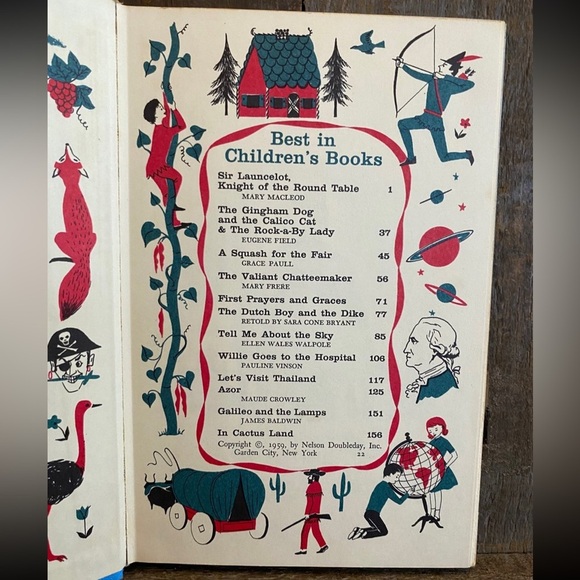 Best in
Children's Books
Sir Launcelot,
Knight of the Round Table 1
MARY MACLEOD
The Gingham Dog
and the Calico Cat
& The Rock-a-By Lady 37
EUGENE FIELD
A Squash for the Fair 45
GRACE PAULL
The Valiant Chatteemaker 56
MARY FRERE
First Prayers and Graces 71
The Dutch Boy and the Dike 77
RETOLD BY SARA CONE BRYANT
Tell Me About the Sky 85
ELLEN WALES WALPOLE
Willie Goes to the Hospital 106
PAULINE VINSON
Let's Visit Thailand 117
Azor 125
MAUDE CROWLEY
Galileo and the Lamps 151
JAMES BALDWIN
In Cactus Land 156
Copyright ©, 1959, by Nelson Doubleday, Inc.
Garden City, New York 22